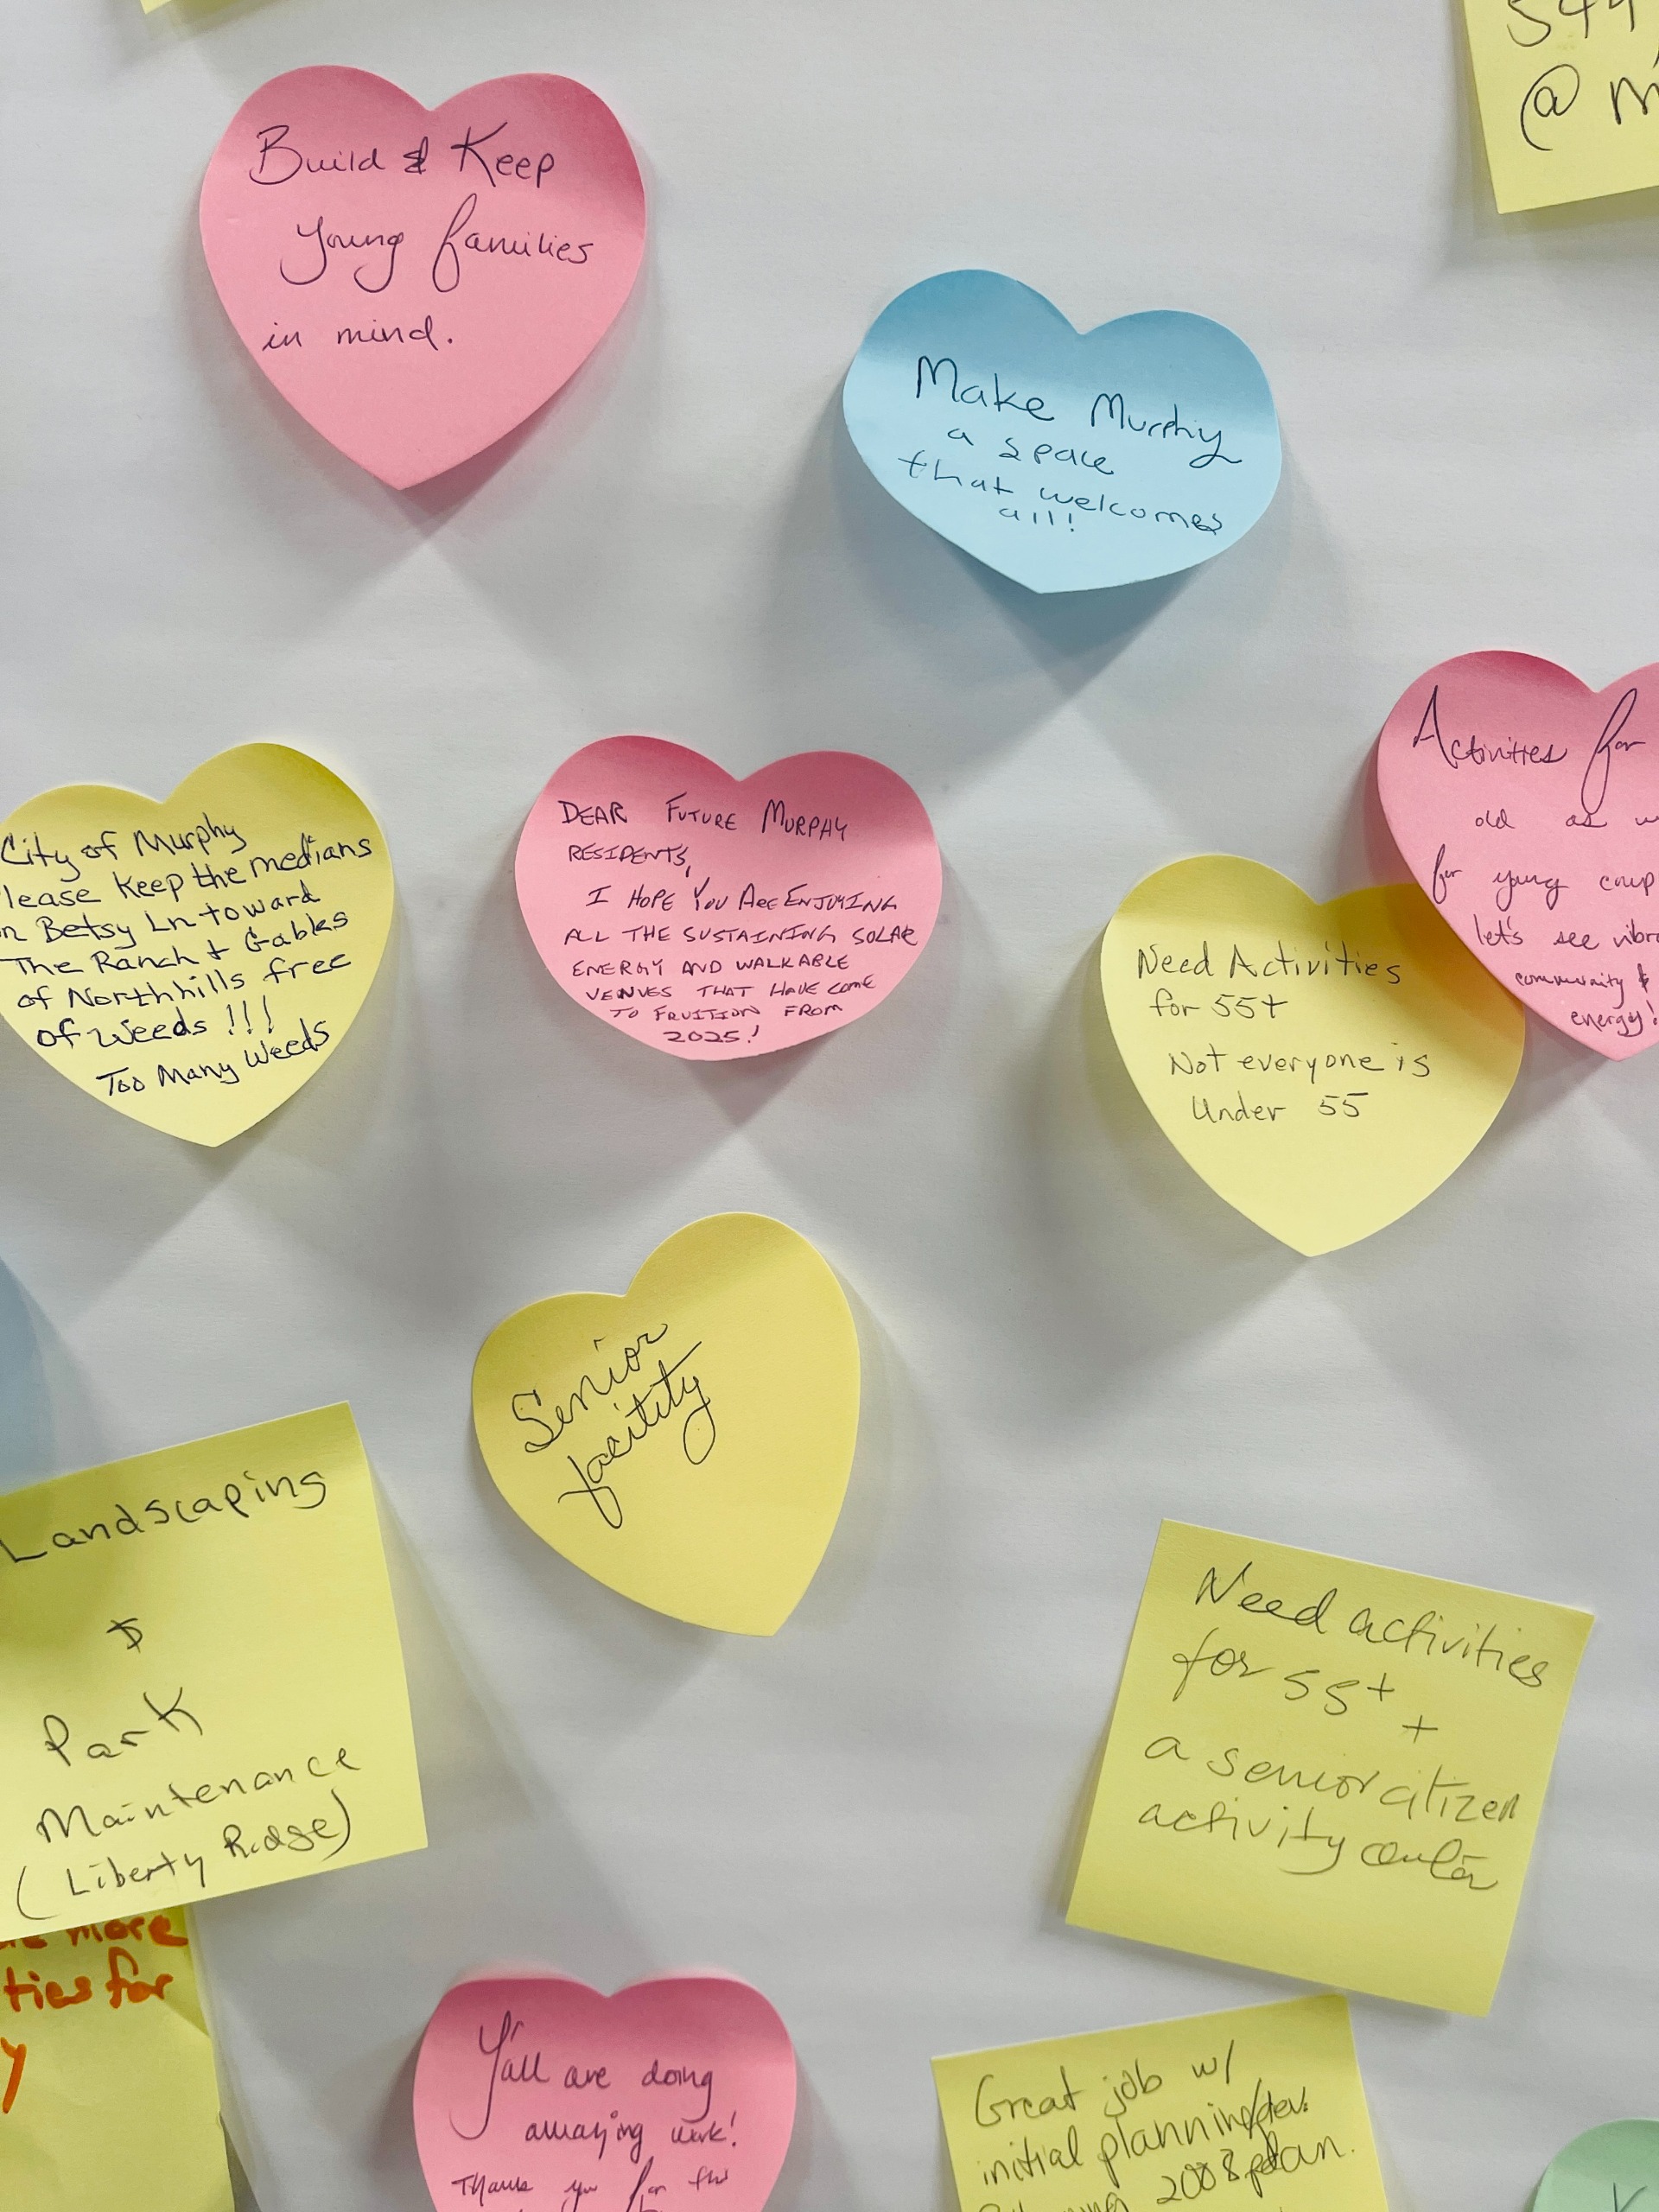 544
@ m
Build & Keep
Young families
in mind.
Make Murphy
a space
that welcomes
all!
Activities for
old as w
for young coup
let's see vibra
community &
energy!
City of Murphy
lease Keep the medians
n Betsy Ln toward
The Ranch + Gables
of Northhills free
of Weeds !!!
Too Many Weeds
DEAR FUTURE MURPHY
RESIDENTS,
I HOPE YOU ARE ENJOYING
ALL THE SUSTAINING SOLAR
ENERGY AND WALKABLE
VENUES THAT HAVE COME
TO FRUITION FROM
2025!
Need Activities
for 55+
Not everyone is
Under 55
Senior
facitity
Landscaping
&
Park
Maintenance
(Liberty Ridge)
Need activities
for 55+
+
a senior citizen
activity center
more
ties for
y
Y'all are doing
amazing work!
Thank you for the
Great job w/
initial planning/dev.
2008 plan.